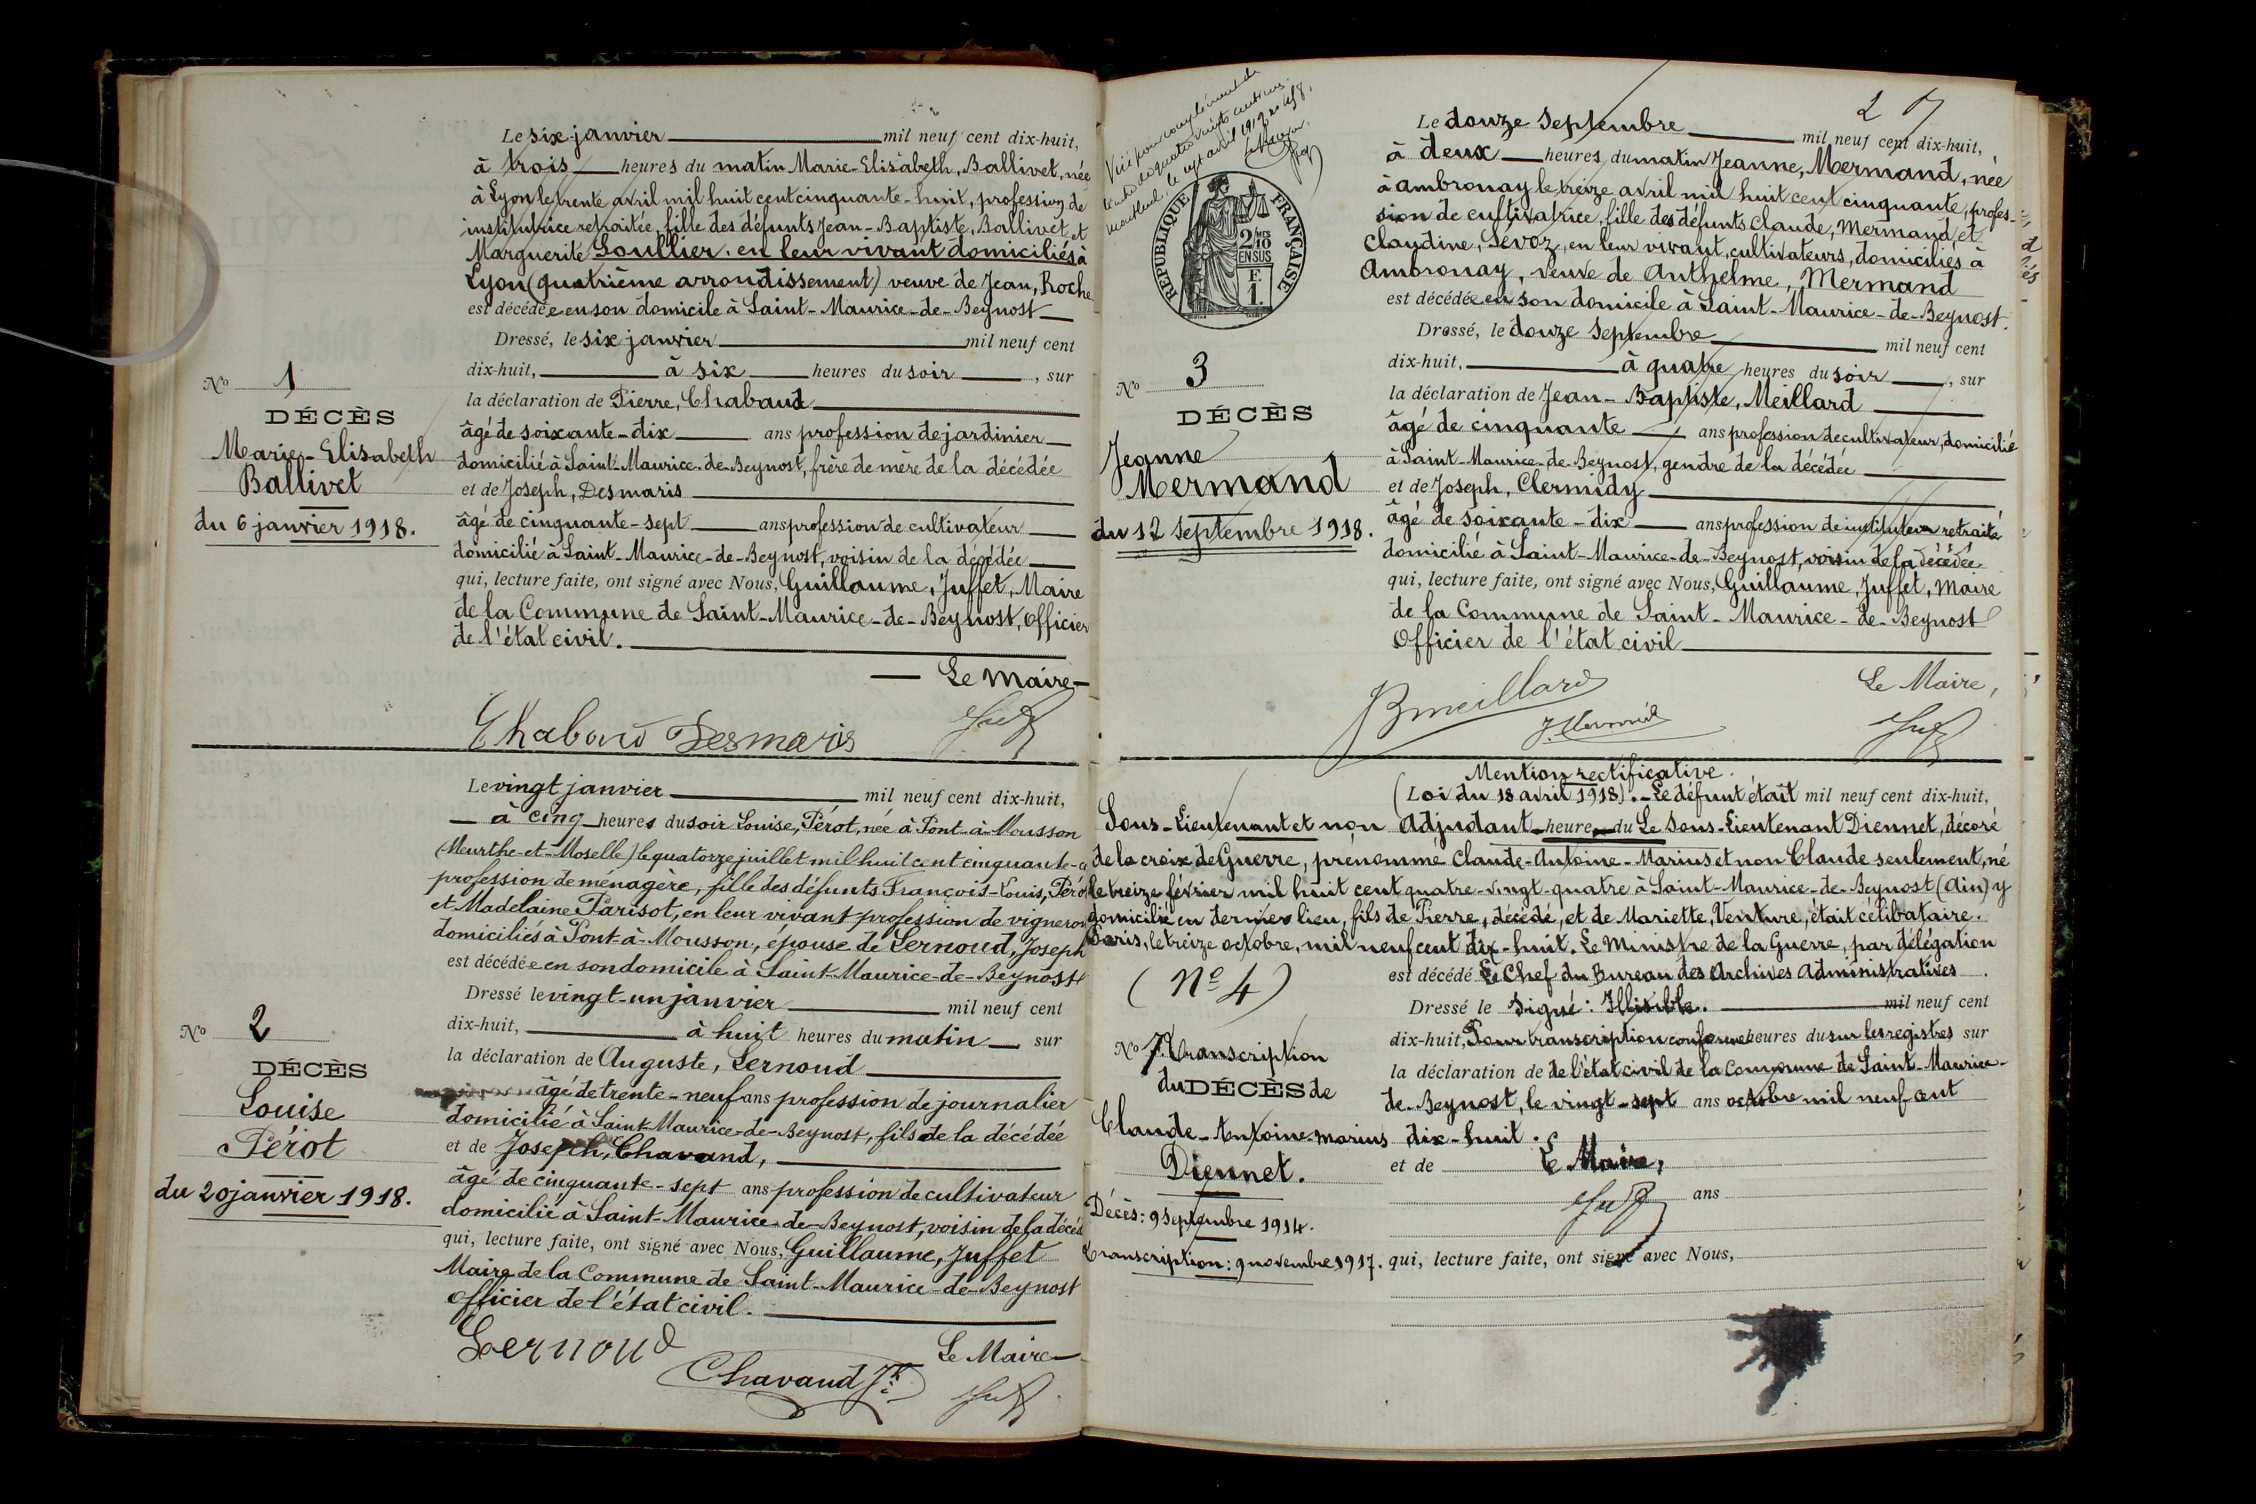 Le six janvier mil neuf cent dix-huit,
à trois heures du matin Marie-Elisabeth, Ballivet, née
à Lyon le trente avril mil huit cent cinquante-huit, profession de
institutrice retraitée, fille des défunts Jean-Baptiste, Ballivet et
Marguerite Soullier, en leur vivant domiciliés à
Lyon (quatrième arrondissement) veuve de Jean, Roche
est décédée en son domicile à Saint-Maurice-de-Beynost
Dressé, le six janvier mil neuf cent
dix-huit, à six heures du soir, sur
la déclaration de Pierre, Chabaud
âgé de soixante-dix ans profession de jardinier
domicilié à Saint-Maurice-de-Beynost, frère de mère de la décédée
et de Joseph, Desmaris
âgé de cinquante-sept ans profession de cultivateur
domicilié à Saint-Maurice-de-Beynost, voisin de la décédée
qui, lecture faite, ont signé avec Nous, Guillaume, Juffet, Maire
de la Commune de Saint-Maurice-de-Beynost, Officier
de l'état civil.
Le Maire
Chabaud Desmaris
No 1
DÉCÈS
Marie-Elisabeth
Ballivet
du 6 janvier 1918.
Le vingt janvier mil neuf cent dix-huit,
à cinq heures du soir Louise, Pérot, née à Pont-à-Mousson
(Meurthe-et-Moselle) le quatorze juillet mil huit cent cinquante-
profession de ménagère, fille des défunts François-Louis, Pérot
et Madelaine Parisot, en leur vivant profession de vigneron
domiciliés à Pont-à-Mousson, épouse de Lernoud, Joseph
est décédée en son domicile à Saint-Maurice-de-Beynost
Dressé le vingt-un janvier mil neuf cent
dix-huit, à huit heures du matin sur
la déclaration de Auguste, Lernoud
âgé de trente-neuf ans profession de journalier
domicilié à Saint-Maurice-de-Beynost, fils de la décédée
et de Joseph, Chavand,
âgé de cinquante-sept ans profession de cultivateur
domicilié à Saint-Maurice-de-Beynost, voisin de la décéd
qui, lecture faite, ont signé avec Nous, Guillaume, Juffet
Maire de la Commune de Saint-Maurice-de-Beynost
Officier de l'état civil.
Lernoud
Le Maire
Chavand Jh
No 2
DÉCÈS
Louise
Pérot
du 20 janvier 1918.
2
Visé pour complément de
le avril 1919
RÉPUBLIQUE FRANÇAISE
2/10
EN SUS
F
1.
Le douze Septembre mil neuf cent dix-huit,
à deux heures du matin Jeanne, Mermand, née
à Ambronay le treize avril mil huit cent cinquante, profes-
sion de cultivatrice, fille des défunts Claude, Mermand et
Claudine, Sévoz, en leur vivant, cultivateurs, domiciliés à
Ambronay, veuve de Anthelme, Mermand
est décédée en son domicile à Saint-Maurice-de-Beynost.
Dressé, le douze Septembre mil neuf cent
dix-huit, à quatre heures du soir, sur
la déclaration de Jean-Baptiste, Meillard
âgé de cinquante ans profession de cultivateur, domicilié
à Saint-Maurice-de-Beynost, gendre de la décédée
et de Joseph, Clermidy
âgé de soixante-dix ans profession de instituteur retraité
domicilié à Saint-Maurice-de-Beynost, voisin de la décédée
qui, lecture faite, ont signé avec Nous, Guillaume, Juffet, Maire
de la Commune de Saint-Maurice-de-Beynost
Officier de l'état civil
Le Maire,
JBMeillard
No 3
DÉCÈS
Jeanne
Mermand
du 12 Septembre 1918.
Mention rectificative.
(Loi du 18 avril 1918).- Le défunt était mil neuf cent dix-huit,
Sous-Lieutenant et non Adjudant heure du Le Sous-Lieutenant Diennet, décoré
de la croix de Guerre, prénommé Claude-Antoine-Marius et non Claude seulement, né
le treize février mil huit cent quatre-vingt-quatre à Saint-Maurice-de-Beynost (Ain) y
domicilié en dernier lieu, fils de Pierre, décédé, et de Mariette, Venture, était célibataire.
Paris, le treize octobre, mil neuf cent dix-huit. Le Ministre de la Guerre, par délégation
est décédé Le Chef du Bureau des Archives Administratives
Dressé le Signé: Illisible. mil neuf cent
dix-huit, Pour transcription conforme heures du sur les registres sur
la déclaration de de l'état civil de la Commune de Saint-Maurice-
de-Beynost, le vingt-sept ans octobre mil neuf cent
dix-huit.
et de Le Maire,
ans
qui, lecture faite, ont signé avec Nous,
(No 4)
No Transcription
du DÉCÈS de
Claude-Antoine-Marius
Diennet.
Décès: 9 Septembre 1914.
Transcription: 9 novembre 1917.